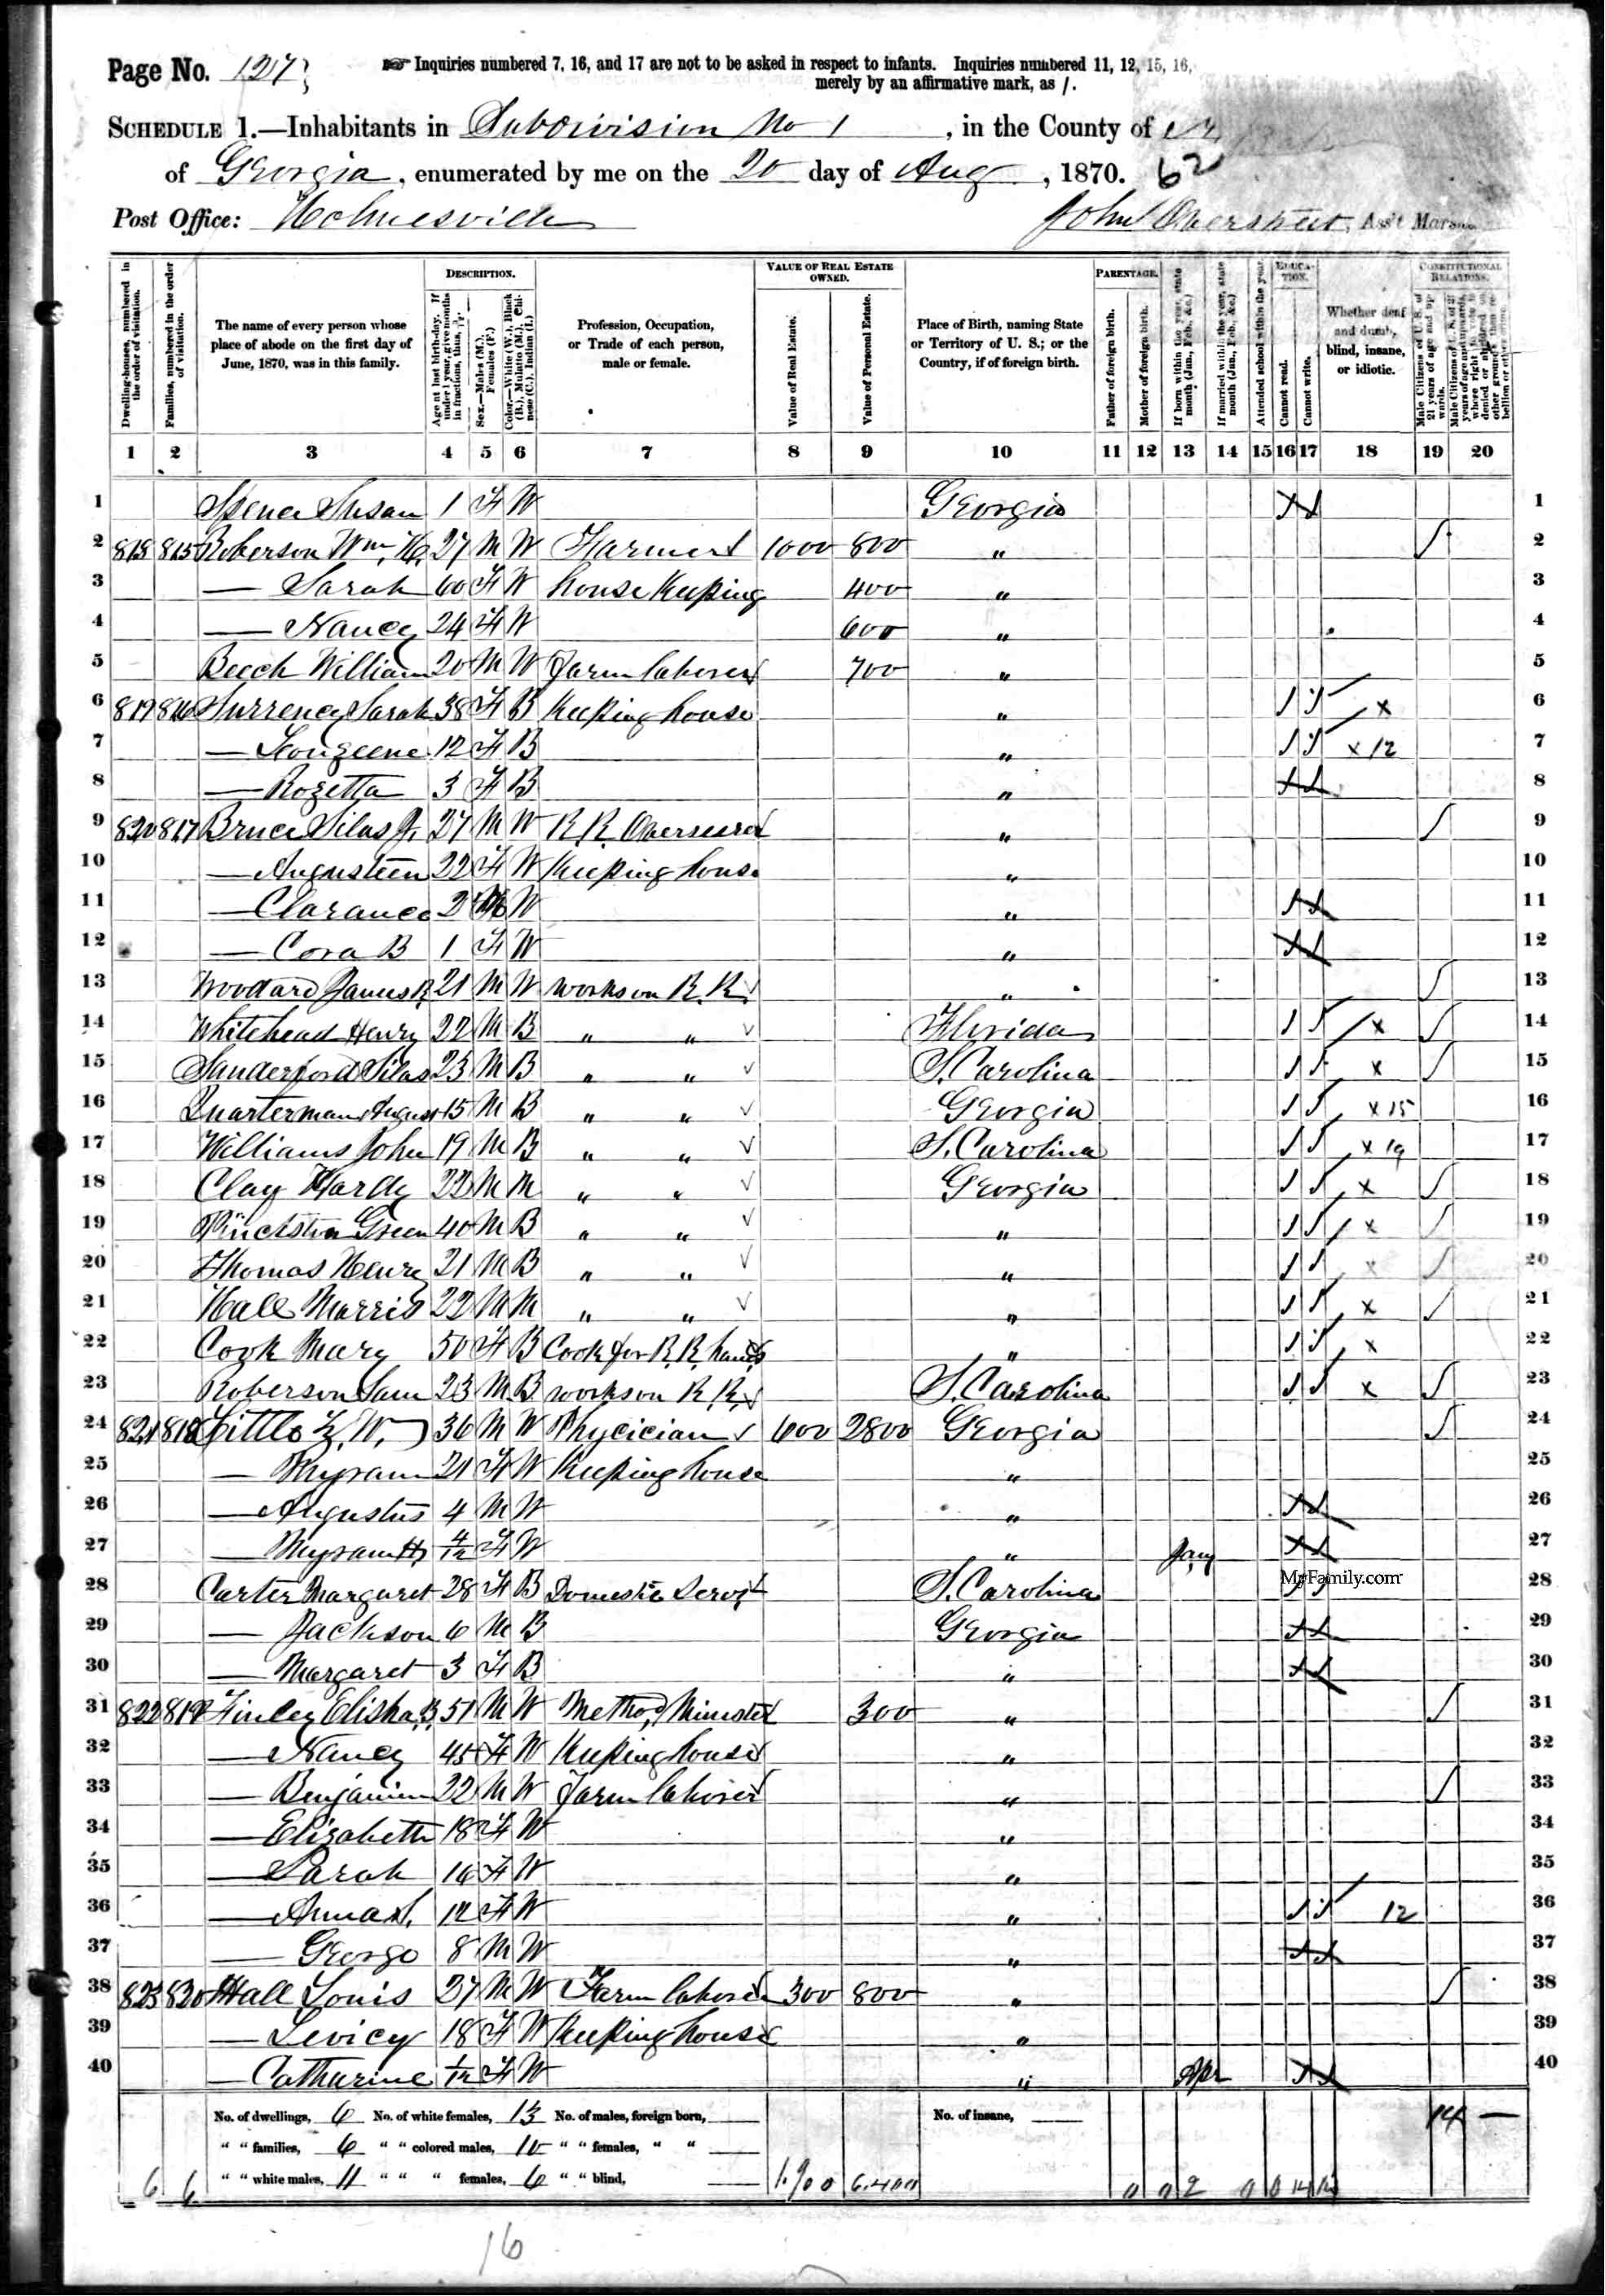 Page No. 127
Inquiries numbered 7, 16, and 17 are not to be asked in respect to infants. Inquiries numbered 11, 12, 15, 16,
merely by an affirmative mark, as /.
SCHEDULE 1.—Inhabitants in Subdivision No 1, in the County of
of Georgia, enumerated by me on the 20 day of Aug, 1870. 62
Post Office: Holmesville John Overstreet, Ass't Mars
Dwelling-houses, numbered in the order of visitation.
Families, numbered in the order of visitation.
The name of every person whose place of abode on the first day of June, 1870, was in this family.
DESCRIPTION.
Age at last birth-day. If under 1 year, give months in fractions, thus, 3/12.
Sex.—Males (M.), Females (F.)
Color.—White (W.), Black (B.), Mulatto (M.), Chinese (C.), Indian (I.)
Profession, Occupation, or Trade of each person, male or female.
VALUE OF REAL ESTATE OWNED.
Value of Real Estate.
Value of Personal Estate.
Place of Birth, naming State or Territory of U. S.; or the Country, if of foreign birth.
PARENTAGE.
Father of foreign birth.
Mother of foreign birth.
If born within the year, state month (Jan., Feb., &c.)
If married within the year, state month (Jan., Feb., &c.)
Attended school within the year.
EDUCATION.
Cannot read.
Cannot write.
Whether deaf and dumb, blind, insane, or idiotic.
CONSTITUTIONAL RELATIONS.
Male Citizens of U. S. of 21 years of age and upwards.
1 2 3 4 5 6 7 8 9 10 11 12 13 14 15 16 17 18 19 20
1 Spence Susan 1 F W Georgia 1
2 818 815 Roberson Wm. H. 27 M W Farmer 1000 800 " / 2
3 — Sarah 60 F W house Keeping 400 " 3
4 — Nancy 24 F W 600 " 4
5 Beech William 20 M W Farm laborer 700 " 5
6 819 816 Surrency Sarah 38 F B Keeping house " / / x 6
7 — 12 F B " / / x 12 7
8 — Rozetta 3 F B " 8
9 820 817 Bruce Silas J. 27 M W R. R. Overseer " / 9
10 — Augusteen 22 F W Keeping house " 10
11 — Clarance 2 M W " 11
12 — Cora B 1 F W " 12
13 Woodard James R. 21 M W works on R. R. " / 13
14 Whitehead Henry 22 M B " " Florida / / x / 14
15 Sanderford Silas 23 M B " " S. Carolina / / x / 15
16 Quarterman August 15 M B " " Georgia / / x 15 16
17 Williams John 19 M B " " S. Carolina / / x 19 17
18 Clay Hardy 22 M M " " Georgia / / x / 18
19 Green 40 M B " " " / / x / 19
20 Thomas Henry 21 M B " " " / / x / 20
21 Hall Morris 22 M M " " " / / x / 21
22 Cook Mary 50 F B Cook for R. R. hands " / / x 22
23 Roberson Sam 23 M B works on R. R. S. Carolina / / x / 23
24 821 818 Little Z. W. 36 M W Phycician 600 2800 Georgia / 24
25 — Myram 21 F W Keeping house " 25
26 — Augustus 4 M W " 26
27 — Myram H. 4/12 F W " Jany 27
28 Carter Margaret 28 F B Domestic Servt S. Carolina / / MyFamily.com 28
29 — Jackson 6 M B Georgia 29
30 — Margaret 3 F B " 30
31 822 819 Finley Elisha B. 51 M W Method. Minister 300 " / 31
32 — Nancy 45 F W Keeping house " 32
33 — Benjamin 22 M W Farm laborer " / 33
34 — Elizabeth 18 F W " 34
35 — Sarah 16 F W " 35
36 — Anna S. 12 F W " / / 12 36
37 — George 8 M W " 37
38 823 820 Hall Louis 27 M W Farm laborer 300 800 " / 38
39 — Levicy 18 F W Keeping house " 39
40 — Catharine 1/12 F W " Apr 40
No. of dwellings, 6 No. of white females, 13 No. of males, foreign born, — No. of insane, — 14 —
" " families, 6 " " colored males, 10 " " females, " " —
6 6 " " white males, 11 " " " females, 6 " " blind, — 1.900 6.400 0 0 2 0 0 14
16